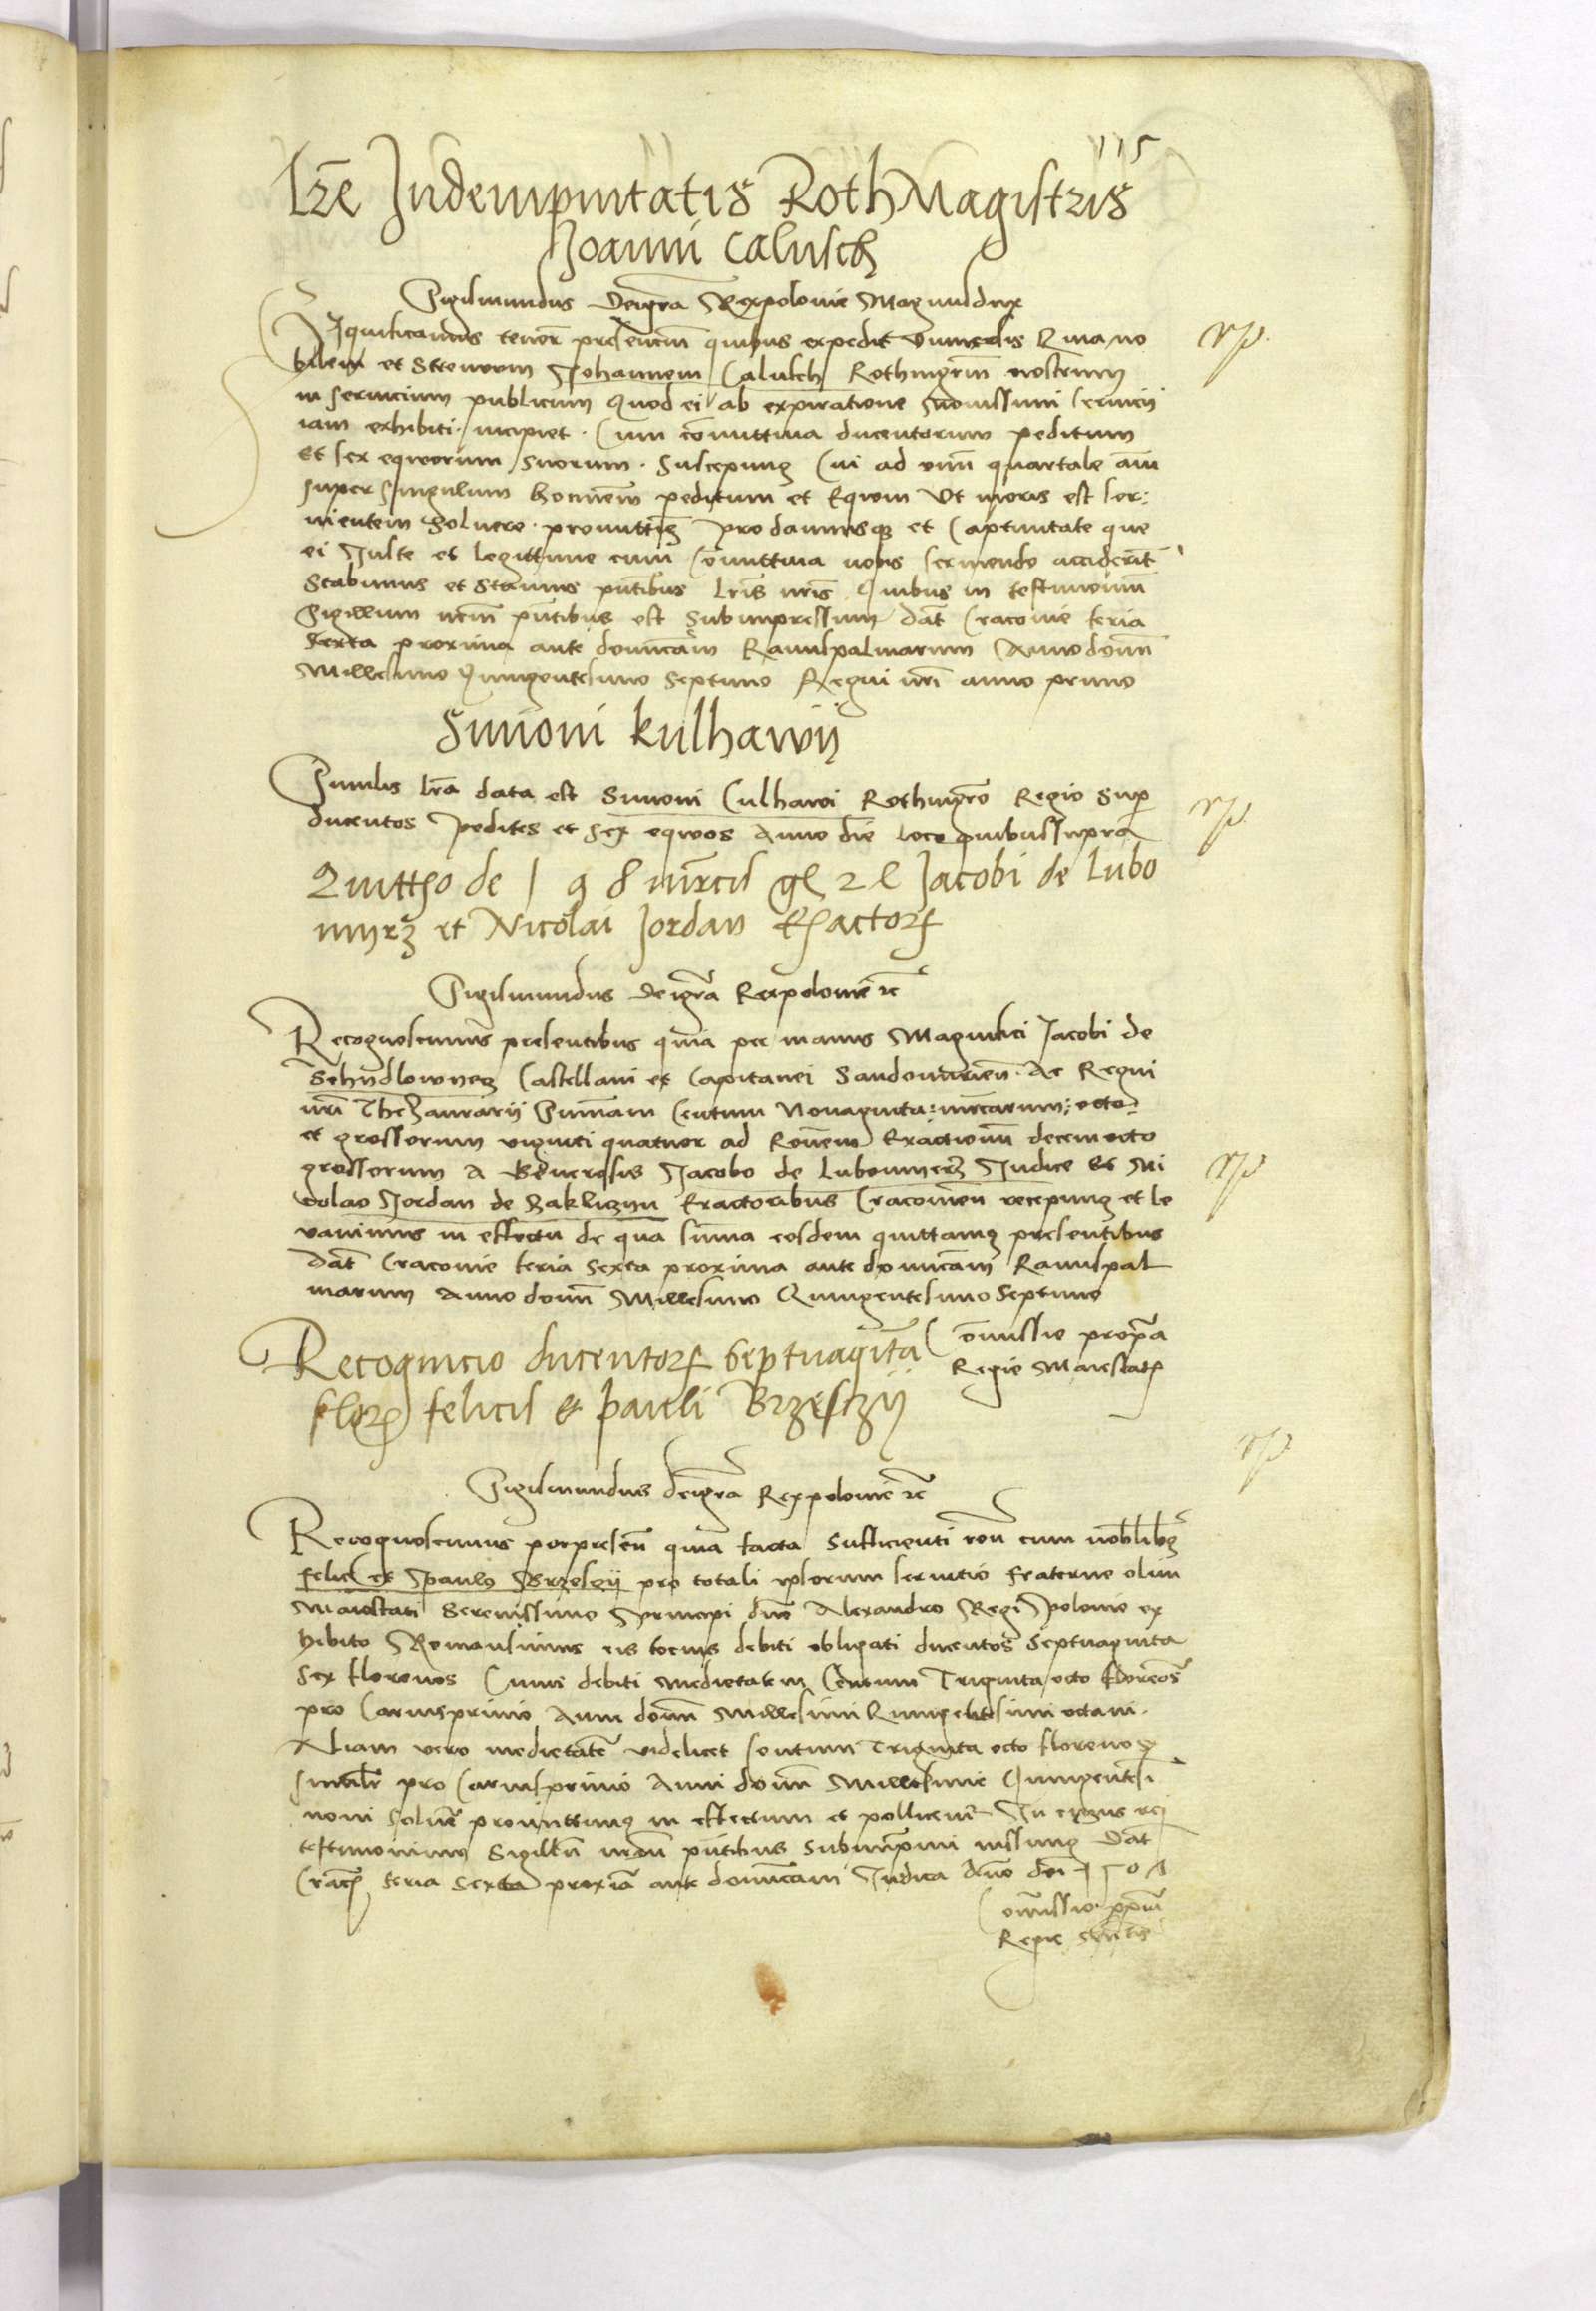 115
Lre Indempnitatis RothMagistris
Joanni Calusch
Sigismundus Deigra Rexpolonie Magnusdux
Significamus tenore presencium quibus expedit universis Quia no
bilem et Strenuum Johannem Calusch Rothmgrm nostrum
in servicium publicum Quod ei ab expiratione novissimi servicij
iam exhibiti incipiet. Cum comittiva ducentorum peditum
et sex eqworum suorum. Suscepimus Cui ad omne quartale anni
super singulum hominem peditum et Equum Ut moris est ser:
vientem Solvere promittimus pro damnisque et Captivitate que
ei Juste et legittime cum Comittiva nobis serviendo acciderit
Stabimus et Stamus pntibus lris nris Quibus in testimonium
Sigillum nrm pntibus est Subimpressum dat Cracovie feria
Sexta proxima ante dominicam Ramispalmarum Anno domini
Millesimo Quingentesimo Septimo Regni nri anno primo
Simoni kulhawij
Similis lra data est Simoni Culhawi Rothmgro Regio Super
ducentos pedites et Sex eqwos Anno die loco quibussupra
Quittatio de 198 mrcis gl 24 Jacobi de Lubo
myrz et Nicolai Jordan Exactorum
Sigismundus deigra Rexpolonie etc
Recognoscimus presentibus quia per manus Magnifici Jacobi de
Schydlowyecz Castellani et Capitanei Sandomirien. Ac Regni
nri Thezaurarij Sumam Centum Nonaginta: mrcarum: octo:
et grossorum viginti quatuor ad Ronem Exactionum decem octo
grossorum a Generosis Jacobo de Lubommerz Judice et Ni
colao Jordan de Zakliczyn Exactoribus Cracovien recepimus et le
vavimus in effectu de qua suma eosdem quittamus presentibus
Dat Cracovie feria sexta proxima ante dominicam Ramispal
marum Anno domini Millesimo Quingentesimo Septimo
Comissio propria
Regie Maiestatis
Recognicio ducentorum septuaginta
florenorum felicis et pauli Brzesczij
Sigismundus deigra Rexpolonie etc
Recognoscimus perpresen quia facta Sufficienti ron cum nobilibus
felice et paulo Brzesczij pro totali ipsorum servitio fraterne olim
Maiestati Serenissimo principi dno Alexandro Regi polonie ex
hibito Remansimus eis tocius debiti obligati ducentos Septuaginta
Sex florenos Cuius debiti Medietatem Centum Triginta octo florenos
pro Carnisprivio Anni domini Millesimi Quingentesimi octavi.
Aliam vero medietatem videlicet Centum Triginta octo florenos
similiter pro Carnisprivio Anni domini Millesimi Quingentesi
noni Solvere promittimus in effectum et pollicemur In cuius rei
testimonium Sigillum nrum pntibus subimprimi iussimus Dat
Crac feria Sexta proxima ante dominicam Judica Anno dni 1507
Comissio propria
Regie Mtis